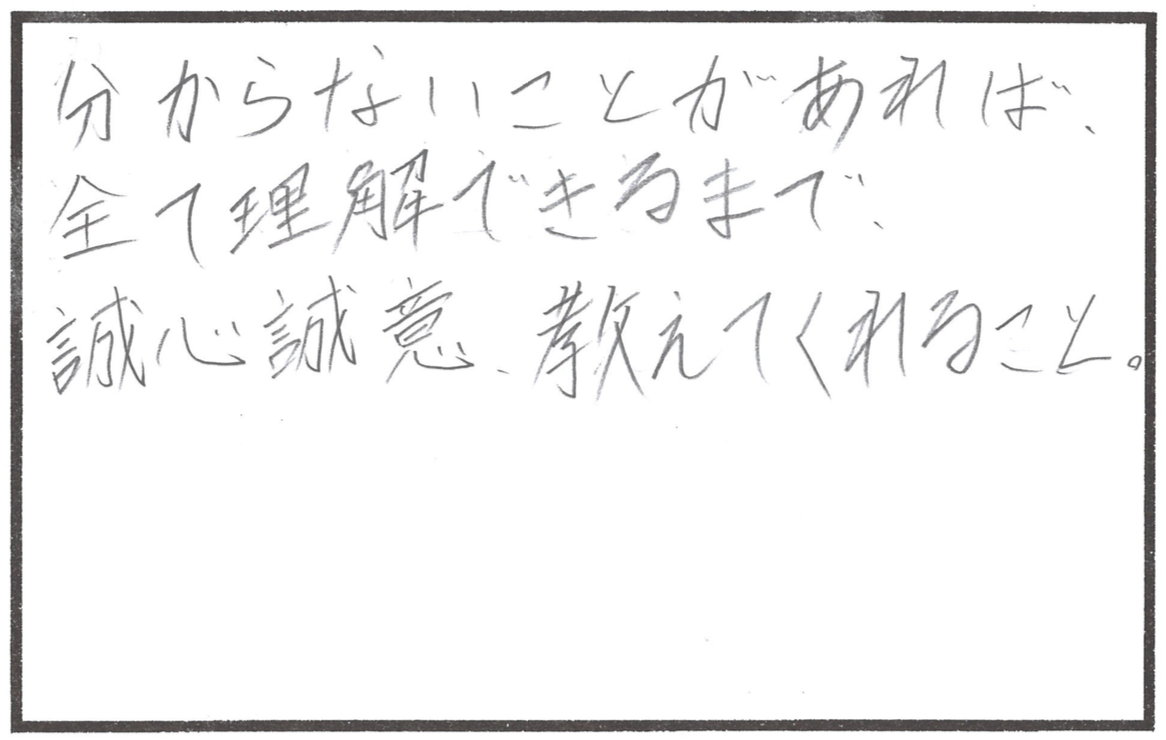 分からないことがあれば、
全て理解できるまで、
誠心誠意、教えてくれること。